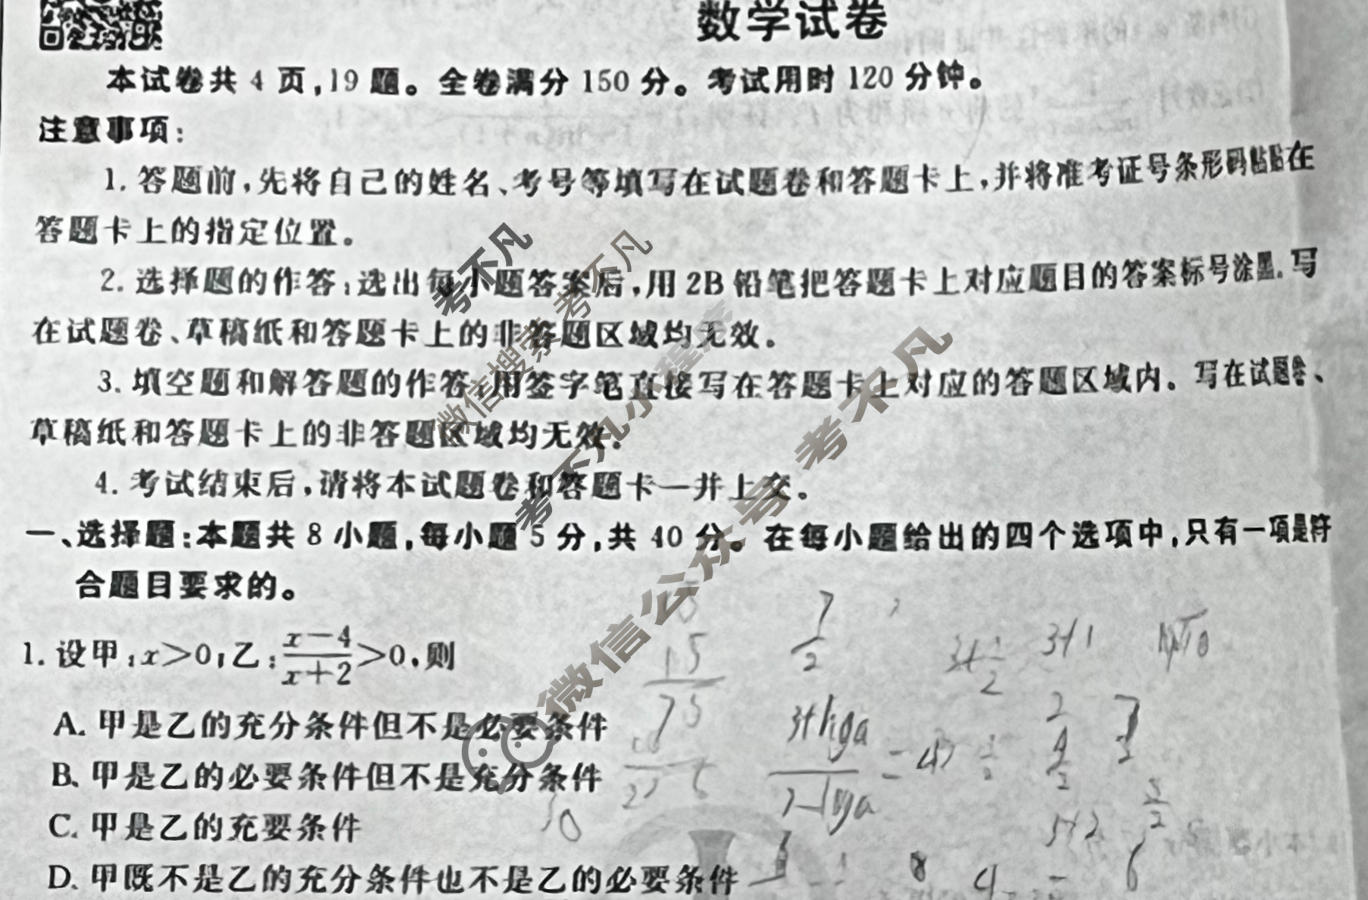 数学试卷
本试卷共 4 页,19 题。全卷满分 150 分。考试用时 120 分钟。
注意事项:
1. 答题前,先将自己的姓名、考号等填写在试题卷和答题卡上,并将准考证号条形码粘贴在
答题卡上的指定位置。
2. 选择题的作答:选出每小题答案后,用 2B 铅笔把答题卡上对应题目的答案标号涂黑。写
在试题卷、草稿纸和答题卡上的非答题区域均无效。
3. 填空题和解答题的作答:用签字笔直接写在答题卡上对应的答题区域内。写在试题卷、
草稿纸和答题卡上的非答题区域均无效。
4. 考试结束后,请将本试题卷和答题卡一并上交。
一、选择题:本题共 8 小题,每小题 5 分,共 40 分。在每小题给出的四个选项中,只有一项是符
合题目要求的。
1. 设甲:x>0;乙:\frac{x-4}{x+2}>0,则
A. 甲是乙的充分条件但不是必要条件
B. 甲是乙的必要条件但不是充分条件
C. 甲是乙的充要条件
D. 甲既不是乙的充分条件也不是乙的必要条件
考不凡
微信搜索 考不凡
考不凡小程序
微信公众号 考不凡